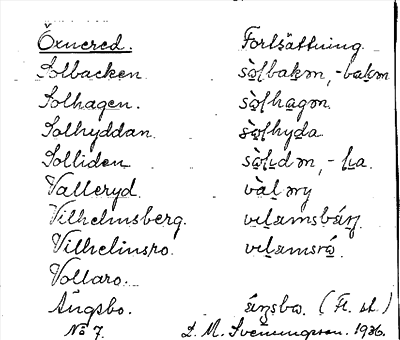 Öxnered. Fortsättning
Solbacken. sò̰lbakən, -bakən
Solhagen. sò̰lhagən
Solhyddan. sò̰lhyda
Solliden sò̰lidən, - li̱a.
Valleryd. vàləry
Vilhelmsberg. vilamsbárj
Vilhelmsro. vilamsró
Vollaro.
Ängsbo. áŋsbo. (Fl. st.)
No 7. D. M. Svenningsson. 1936.